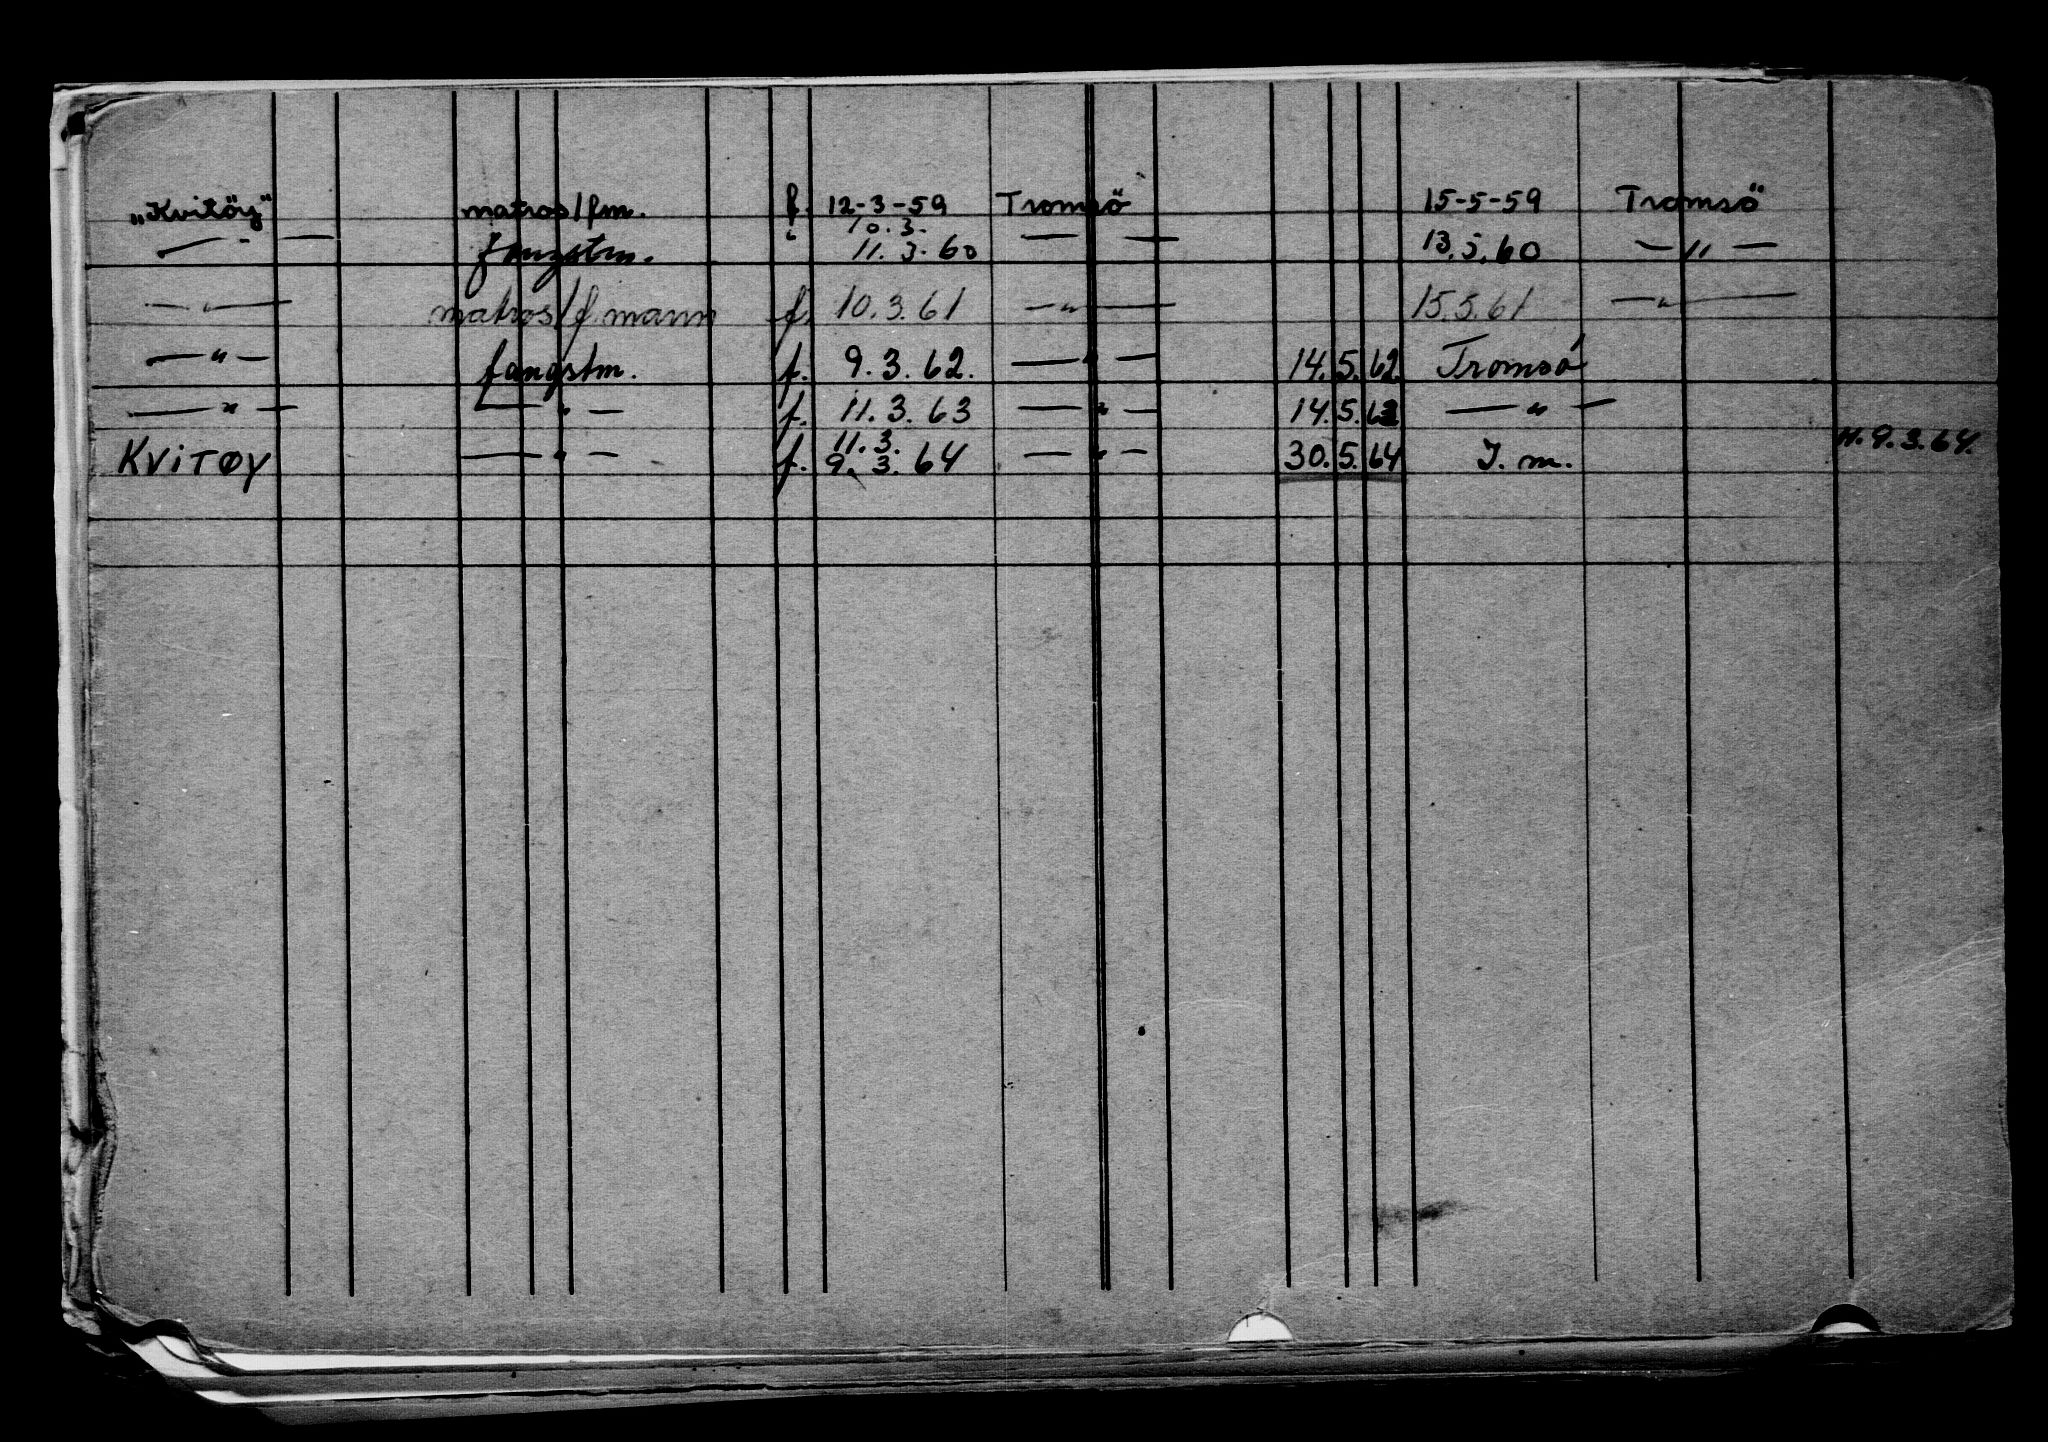 „Kvitöy" matros/fm. f. 12-3-59 Tromsö 15-5-59 Tromsö
— " — fangstm. " 10.3. 11.3.60 — — 13.5.60 — " —
— " — matros/f.mann f. 10.3.61 — " — 15.5.61 — " —
— " — fangstm. f. 9.3.62. — " — 14.5.62 Tromsö
— " — — " — f. 11.3.63 — " — 14.5.63 — " —
KviTøy — " — f. 11.3. 9.3.64 — " — 30.5.64 J.m. H.9.3.64.